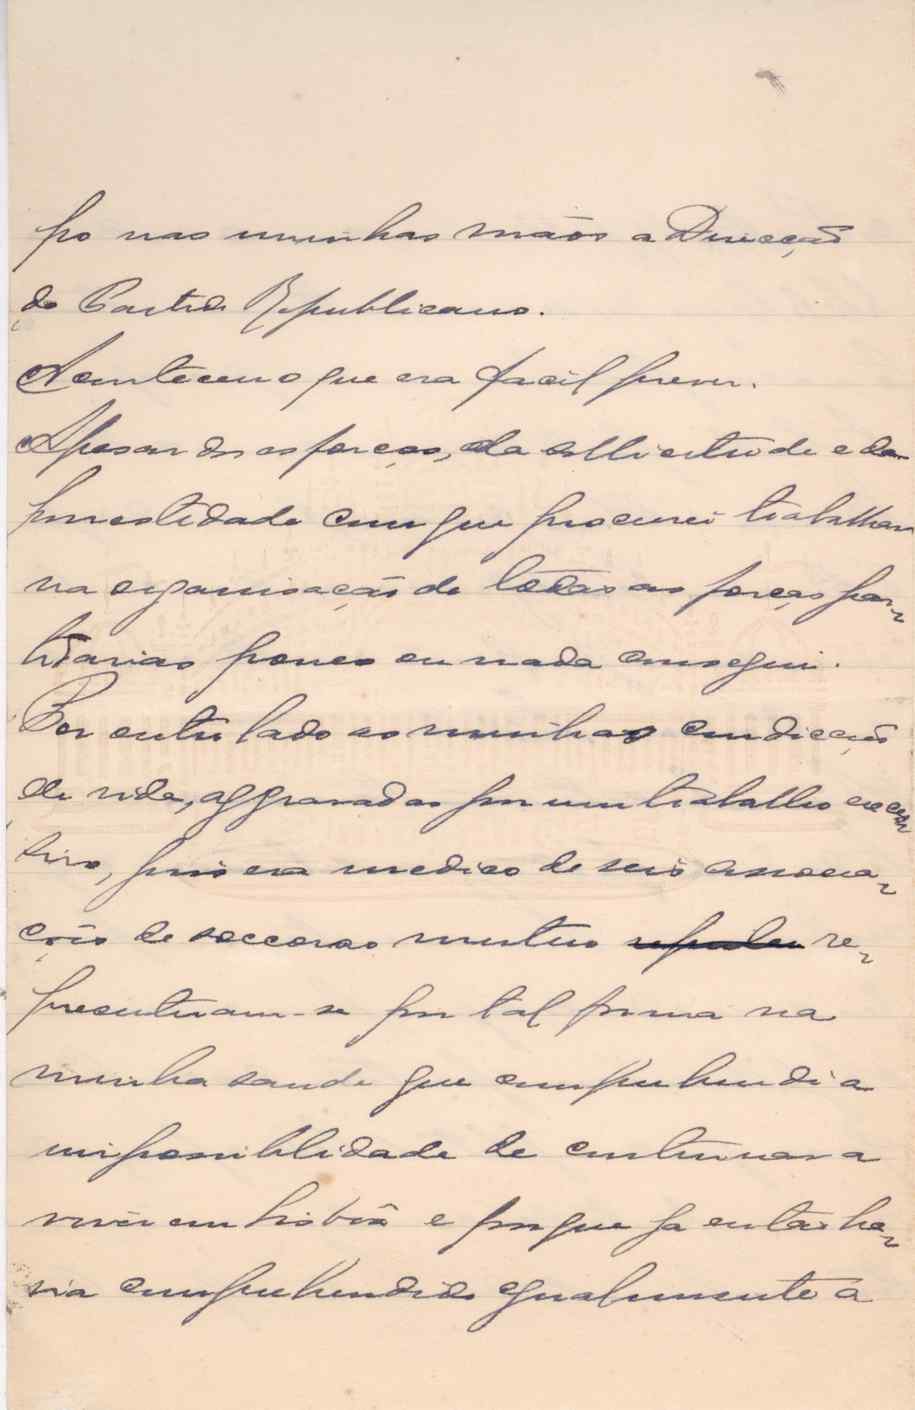 po nas minhas mãos a Direcção
do Partido Republicano.
Aconteceu o que era facil prever.
Apesar dos esforços, da sollicitude e da
honestidade com que procurei trabalhar
na organisação de tôdas as forças par-
tidarias pouco ou nada consegui.
Por outro lado as minhas condicções
de vida, aggravadas por um trabalho excess
sivo, pois era medico de seis associa-
ções de soccorros mutuos re-
presentaram-se por tal forma na
minha saude que comprehendi a
impossiblidade de continuar a
viver em Lisbôa e porque ja então ha-
via comprehendido egualmente a